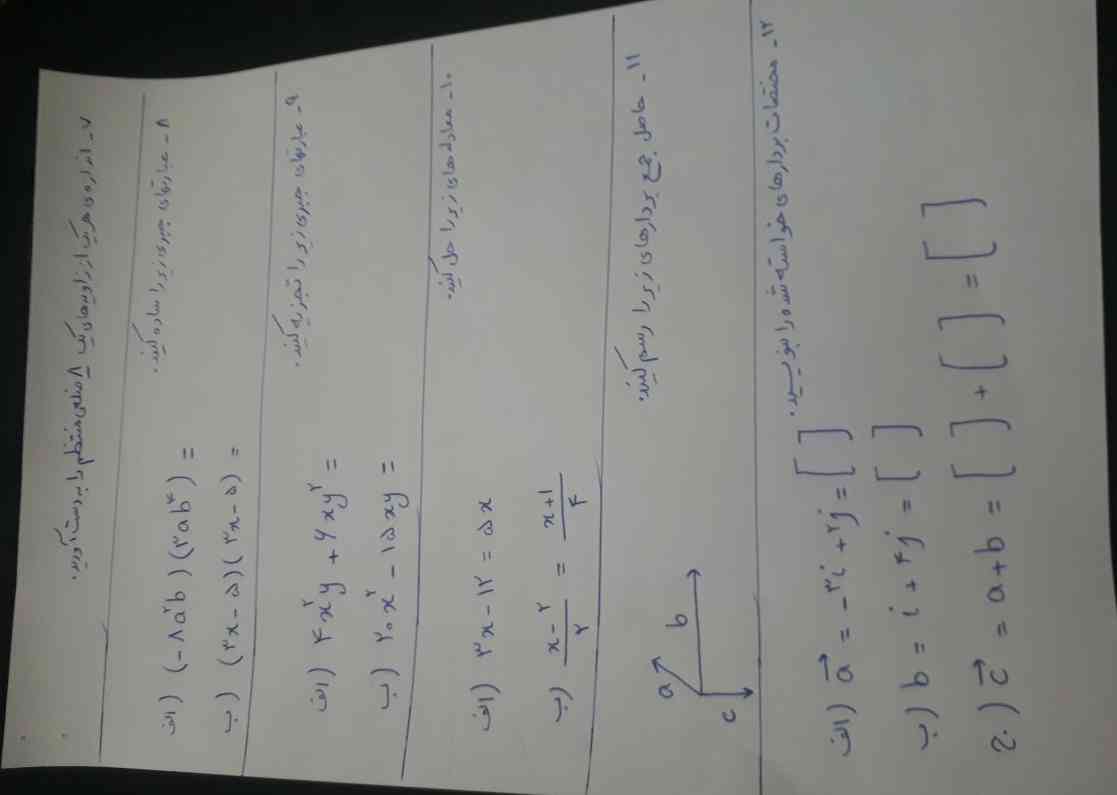 ۷- اندازه‌ی هر یک از زاویه‌های یک ۸ ضلعی منتظم را به دست آورید.
۸- عبارتهای جبری زیر را ساده کنید.
الف) (-۸a²b)(۳ab⁴) =
ب) (۳x-۵)(۳x-۵) =
۹- عبارتهای جبری زیر را تجزیه کنید.
الف) ۴x²y + ۶xy² =
ب) ۲۰x² - ۱۵xy =
۱۰- معادله‌های زیر را حل کنید.
الف) ۳x-۱۲ = ۵x
ب) (x-۲)/۲ = (x+۱)/۴
۱۱- حاصل جمع بردارهای زیر را رسم کنید.
a
b
c
۱۲- مختصات بردارهای خواسته شده را بنویسید.
الف) a⃗ = -۳i + ۲j = [ ]
ب) b = i + ۴j = [ ]
ج) c⃗ = a+b = [ ] + [ ] = [ ]